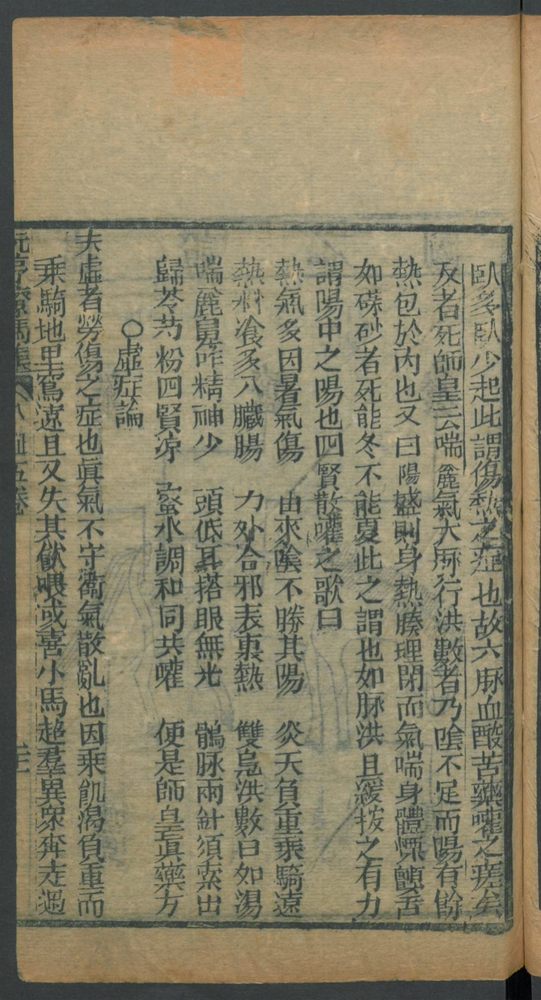 臥多臥少起此謂傷熱之症也故六脉血酸苦藥嚾之瘥矣
反者死師皇云喘麄氣大脉行洪數者乃陰不足而陽有餘
熱包於內也又曰陽盛則身熱腠理閉而氣喘身體慄顫舌
如硃砂者死能冬不能夏此之謂也如脉洪且緩拔之有力
謂陽中之陽也四賢散嚾之歌曰
熱氣多因暑氣傷　由來陰不勝其陽　炎天負重乘騎遠
熱料飡多入臟腸　力外合邪表裏熱　雙鳧洪數日如湯
喘麄鼻咋精神少　頭低耳搭眼無光　鶻脉兩針須索出
歸苓芍粉四賢凉　蜜水調和同共嚾　便是師皇眞藥方
〇虛症論
夫虛者勞傷之症也眞氣不守衞氣散亂也因乘飢渴負重而
乘騎地里窵遠且又失其飲喂或喜小馬超羣異衆奔走過